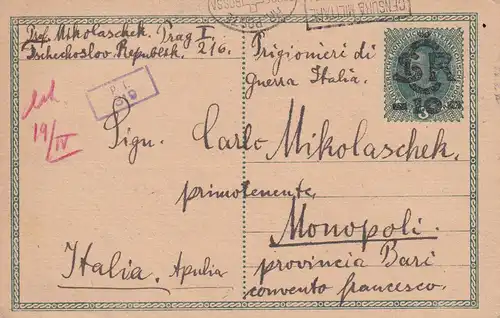 Prof. Mikolaschek. Prag I.
Tschechoslov. Republik. 216.
Prigionieri di
guerra Italia.
CENSURA MILITARE
ČSR
- 10 -
19/IV
Sign. Carlo Mikolaschek.
primotenente,
Monopoli.
Italia. Apulia
provincia Bari
convento francesco.